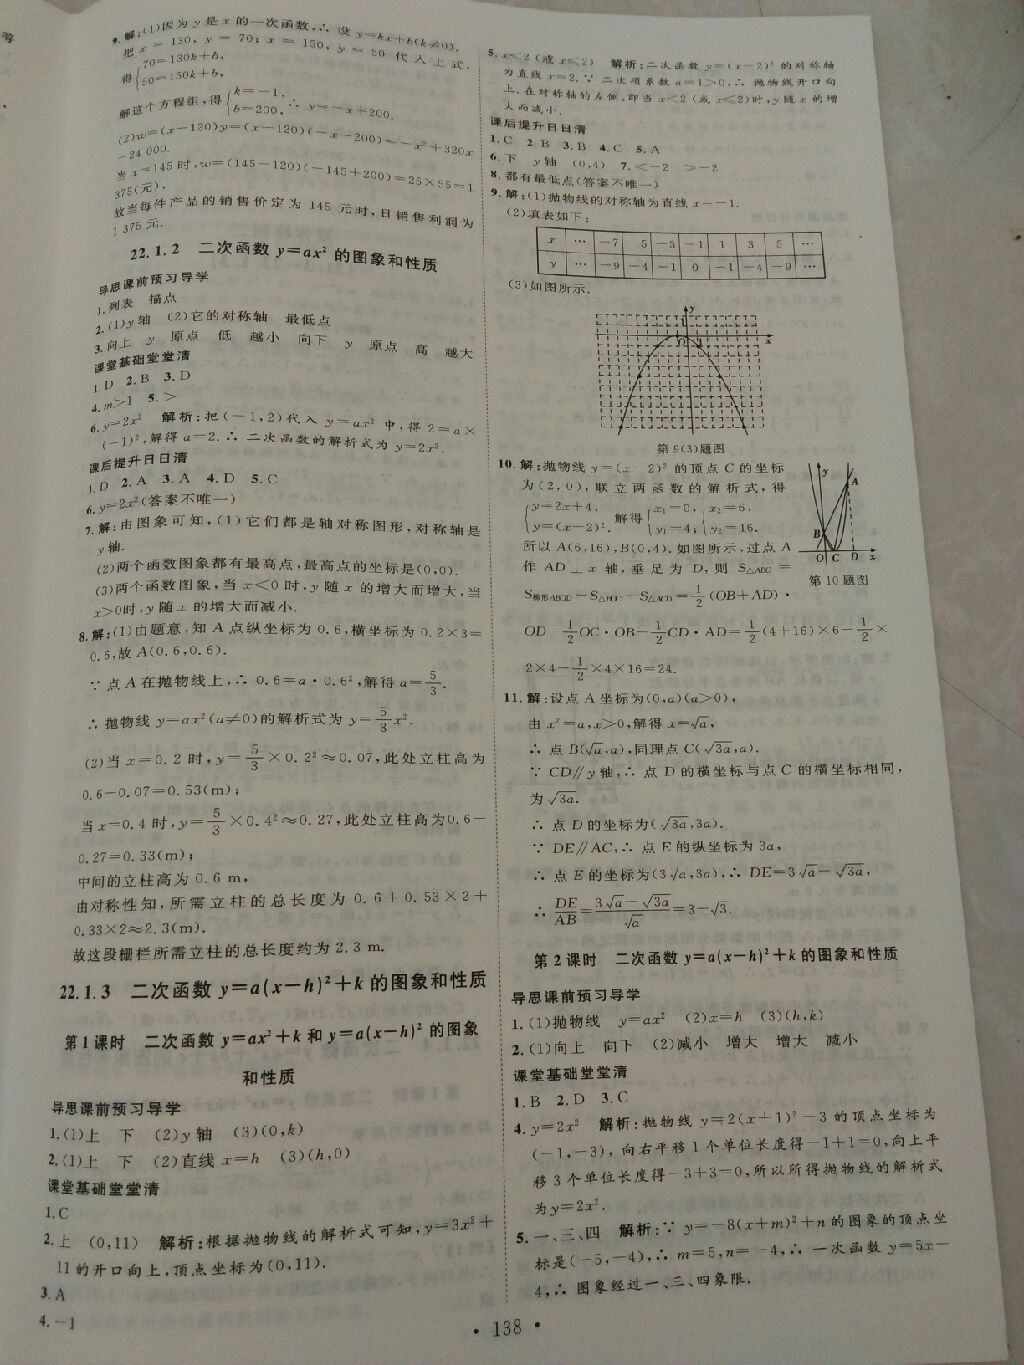 9.解:(1)因为y是x的一次函数,∴设y=kx+b(k≠0).
把x=130,y=70;x=150,y=50代入上式.
得{70=130k+b,
50=150k+b,
解这个方程组,得{k=-1,
b=200, ∴y=-x+200.
(2)w=(x-120)y=(x-120)(-x+200)=-x²+320x
-24 000.
当x=145时,w=(145-120)(-145+200)=25×55=1
375(元),
故当每件产品的销售价定为145元时,日销售利润为
1 375元.
22.1.2 二次函数y=ax²的图象和性质
导思课前预习导学
1.列表 描点
2.(1)y轴 (2)它的对称轴 最低点
3.向上 y 原点 低 越小 向下 y 原点 高 越大
课堂基础堂堂清
1.D 2.B 3.D
4.m>1 5.>
6.y=2x² 解析:把(-1,2)代入y=ax²中,得2=a×
(-1)²,解得a=2.∴二次函数的解析式为y=2x².
课后提升日日清
1.D 2.A 3.A 4.D 5.C
6.y=2x²(答案不唯一)
7.解:由图象可知,(1)它们都是轴对称图形,对称轴是
y轴.
(2)两个函数图象都有最高点,最高点的坐标是(0,0).
(3)两个函数图象,当x<0时,y随x的增大而增大,当
x>0时,y随x的增大而减小.
8.解:(1)由题意,知A点纵坐标为0.6,横坐标为0.2×3=
0.6,故A(0.6,0.6).
∵点A在抛物线上,∴0.6=a·0.6²,解得a=5/3.
∴抛物线y=ax²(a≠0)的解析式为y=5/3x².
(2)当x=0.2时,y=5/3×0.2²≈0.07,此处立柱高为
0.6-0.07=0.53(m);
当x=0.4时,y=5/3×0.4²≈0.27,此处立柱高为0.6-
0.27=0.33(m);
中间的立柱高为0.6 m,
由对称性知,所需立柱的总长度为0.6+0.53×2+
0.33×2≈2.3(m).
故这段栅栏所需立柱的总长度约为2.3 m.
22.1.3 二次函数y=a(x-h)²+k的图象和性质
第1课时 二次函数y=ax²+k和y=a(x-h)²的图象
和性质
导思课前预习导学
1.(1)上 下 (2)y轴 (3)(0,k)
2.(1)上 下 (2)直线x=h (3)(h,0)
课堂基础堂堂清
1.C
2.上 (0,11) 解析:根据抛物线的解析式可知,y=3x²+
11的开口向上,顶点坐标为(0,11).
3.A
4.-1
5.x<2(或x≤2) 解析:二次函数y=(x-2)²的对称轴
为直线x=2.∵二次项系数a=1>0,∴抛物线开口向
上.在对称轴的左侧,即当x<2(或x≤2)时,y随x的增
大而减小.
课后提升日日清
1.C 2.B 3.B 4.C 5.A
6.下 y轴 (0,4) 7.<-2 >-2
8.都有最低点(答案不唯一)
9.解:(1)抛物线的对称轴为直线x=-1.
(2)填表如下:
x … -7 -5 -3 -1 1 3 5 …
y … -9 -4 -1 0 -1 -4 -9 …
(3)如图所示.
y
1
O 1 x
第9(3)题图
10.解:抛物线y=(x-2)²的顶点C的坐标
为(2,0),联立两函数的解析式,得
{y=2x+4,
y=(x-2)². 解得{x₁=0,
y₁=4; {x₂=6,
y₂=16.
所以A(6,16),B(0,4).如图所示,过点A
作AD⊥x轴,垂足为D,则S△ABC=
S梯形ABOD-S△BOC-S△ACD=1/2(OB+AD)·
OD-1/2OC·OB-1/2CD·AD=1/2(4+16)×6-1/2×
2×4-1/2×4×16=24.
y
A
B
O C D x
第10题图
11.解:设点A坐标为(0,a)(a>0),
由x²=a,x>0,解得x=√a,
∴点B(√a,a),同理点C(√3a,a).
∵CD∥y轴,∴点D的横坐标与点C的横坐标相同,
为√3a.
∴点D的坐标为(√3a,3a).
∵DE∥AC,∴点E的纵坐标为3a,
∴点E的坐标为(3√a,3a),∴DE=3√a-√3a,
∴DE/AB=(3√a-√3a)/√a=3-√3.
第2课时 二次函数y=a(x-h)²+k的图象和性质
导思课前预习导学
1.(1)抛物线 y=ax² (2)x=h (3)(h,k)
2.(1)向上 向下 (2)减小 增大 增大 减小
课堂基础堂堂清
1.B 2.D 3.C
4.y=2x² 解析:抛物线y=2(x+1)²-3的顶点坐标为
(-1,-3),向右平移1个单位长度得-1+1=0,向上平
移3个单位长度得-3+3=0,所以所得抛物线的解析式
为y=2x².
5.一、三、四 解析:∵y=-8(x+m)²+n的图象的顶点坐
标是(-5,-4),∴m=5,n=-4,∴一次函数y=5x-
4,∴图象经过一、三、四象限.
·138·